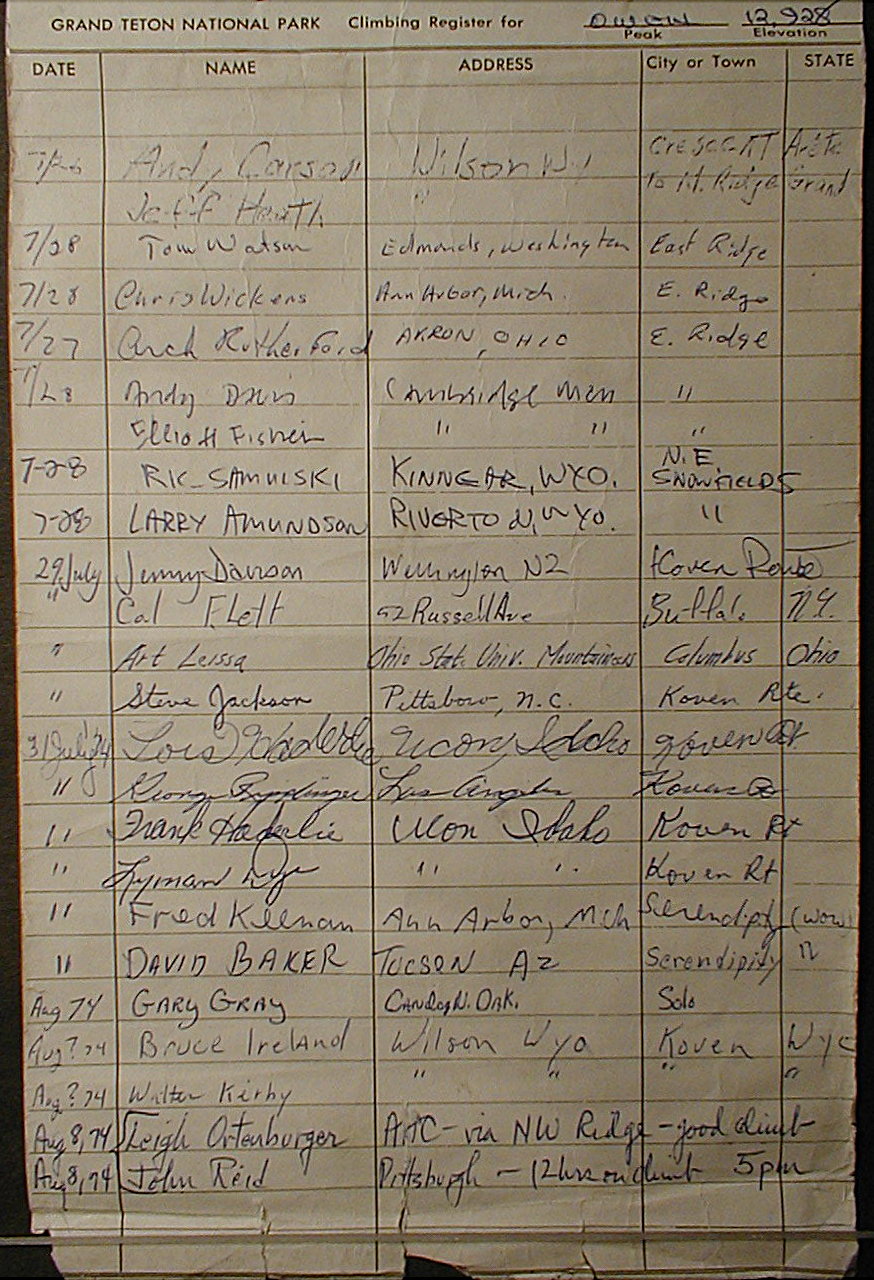 GRAND TETON NATIONAL PARK Climbing Register for OWEN 12,928
Peak Elevation
DATE NAME ADDRESS City or Town STATE
Andy Carson Wilson Wy CRESCENT Arête
Jeff Heath " To N. Ridge Grand
7/28 Tom Watson Edmonds, Washington East Ridge
7/28 Chris Wickens Ann Arbor, Mich. E. Ridge
7/27 Arch Rutherford AKRON, OHIO E. Ridge
7/28 Andy Davis Cambridge "
Elliott Fisher " " "
7-28 RK SAMULSKI KINNEAR, WYO. N.E SNOWFIELDS
7-28 LARRY AMUNDSON RIVERTON, WYO. "
29 July Jenny Dawson Wellington NZ Koven Route
" Cal Flett 92 Russell Ave Buffalo N.Y.
" Art Leissa Ohio State Univ. Mountaineers Columbus Ohio
" Steve Jackson Pittsboro, N.C. Koven Rte.
31 July 74 Lois Ucon, Idaho Koven Rt
" George Los Angeles Koven
" Frank Haderlie Ucon Idaho Koven Rt
" Lyman Dye " " Koven Rt
" Fred Keenan Ann Arbor, Mich Serendipity (wow)
" DAVID BAKER TUCSON AZ Serendipity "
Aug 74 GARY GRAY CANDO, N. DAK. Solo
Aug ? 74 Bruce Ireland Wilson Wyo Koven Wyo
Aug ? 74 Walter Kirby " " " "
Aug 8, 74 Leigh Ortenburger AAC - via NW Ridge - good climb
Aug 8, 74 John Reid Pittsburgh - 12 hrs on climb 5pm